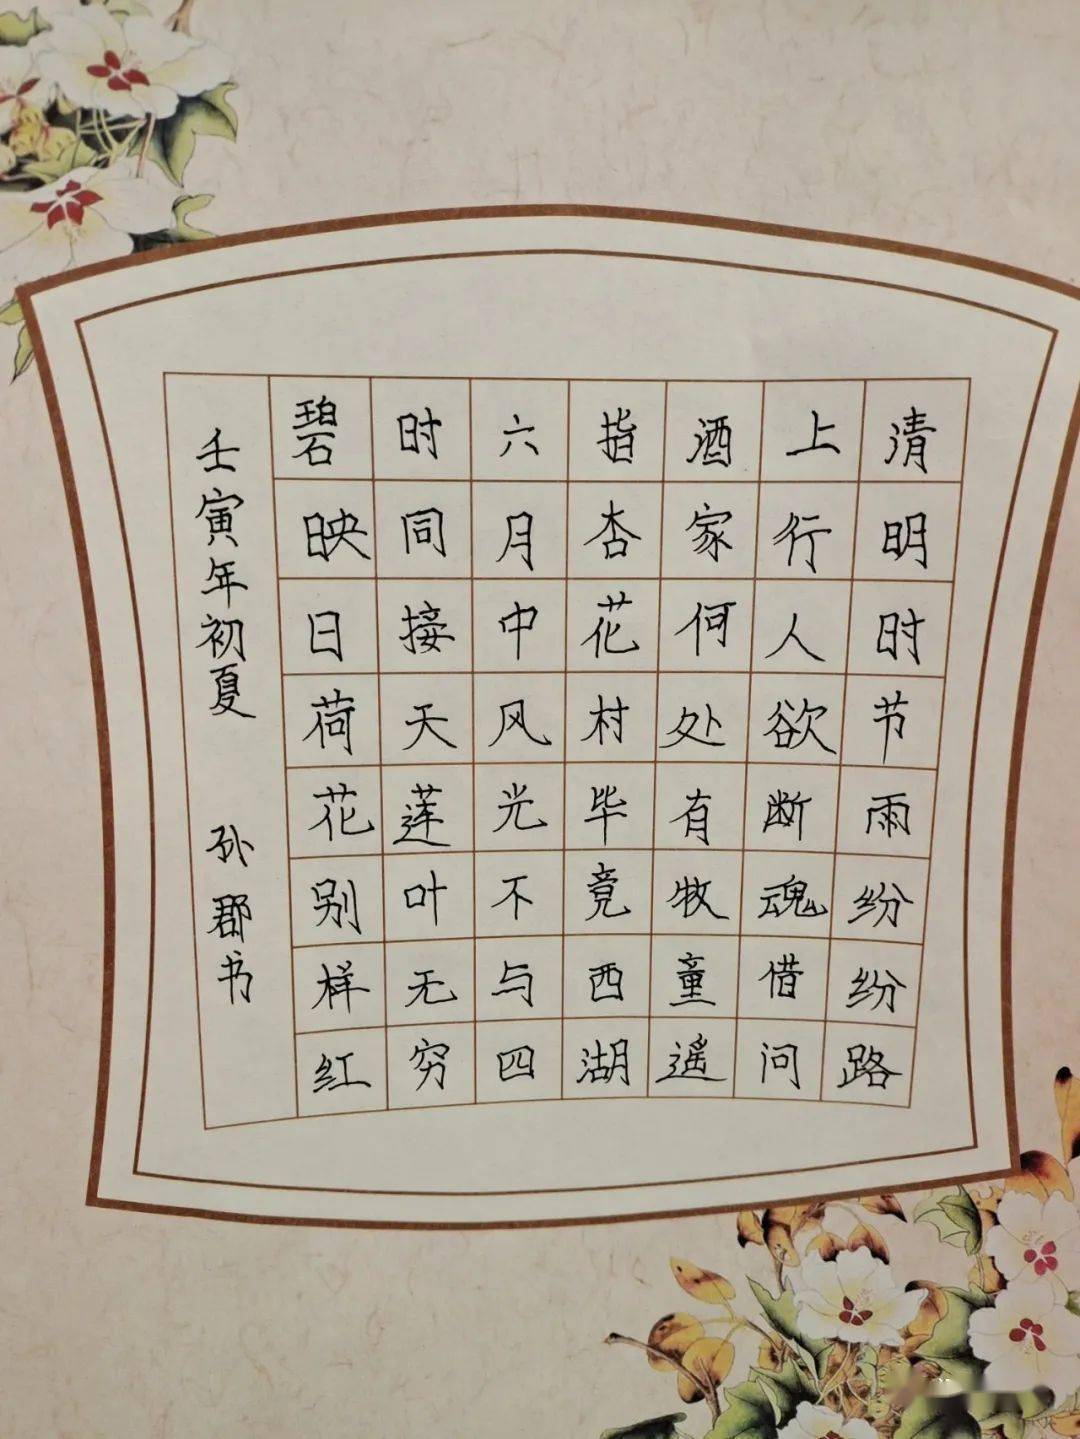 清明时节雨纷纷路
上行人欲断魂借问
酒家何处有牧童遥
指杏花村毕竟西湖
六月中风光不与四
时同接天莲叶无穷
碧映日荷花别样红
壬寅年初夏 孙郡书